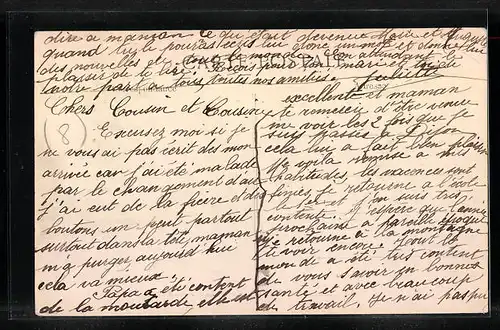 dire a manzan ce qu'fait devenue Marie et Auguste
quand tu le pouras ecris lui donc un mot et donne lui
des nouvelles de tout le monde en attendant le
plaisir de te lire
votre part a tous toutes nos amitiés. Juliette
Chers Cousin et Cousine
Excusez moi si je
ne vous ai pas ecrit dès mon
arrivé car j'ai été malade
par le changement d'air
j'ai eut de la fièvre et des
boutons un peut partout
surtout dans la tête, maman
m'a purger aujourd'hui
cela va mieux.
Papa a été content
de la moutarde elle est
excellente et maman
te remercie d'être venue
me voir les 2 fois que je
suis passés a Dijon
cela lui a fait bien plaisir
M'y voila remise a mes
habitudes, les vacances sont
finies je retourne a l'école
et j'en suis très
contente. J'espère que l'année
prochaine a pareille époque
je retourne à la montagne
te voir encore. Tout le
monde a été très content
de vous savoir en bonne
santé et avec beaucoup
de travail. Je n'ai pas pu
8